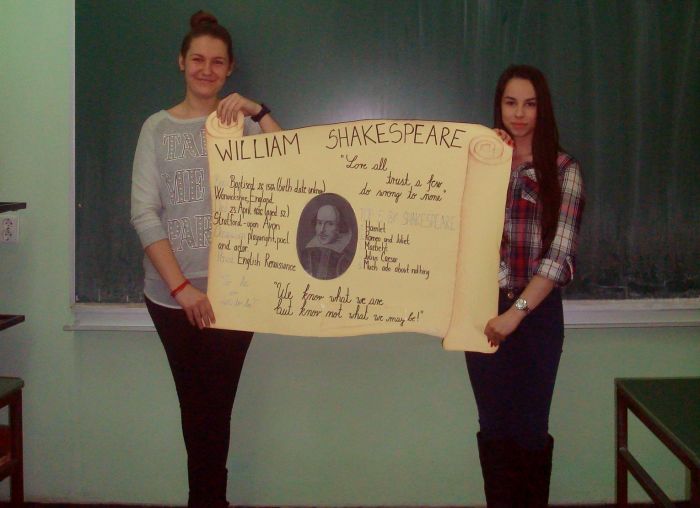 WILLIAM SHAKESPEARE
"Love all
trust a few
do wrong to none"
Baptised 26, 1564 (birth date unknown)
Warwickshire, England
23. April 1616 (aged 52)
Stratford-upon Avon
playwright, poet
and actor
English Renaissance
To be
or
not to be?
TOP 5 BY SHAKESPEARE
Hamlet
Romeo and Juliet
Macbeth
Julius Caesar
Much ado about nothing
"We know what we are
but know not what we may be!"
TAK
ME
PAR